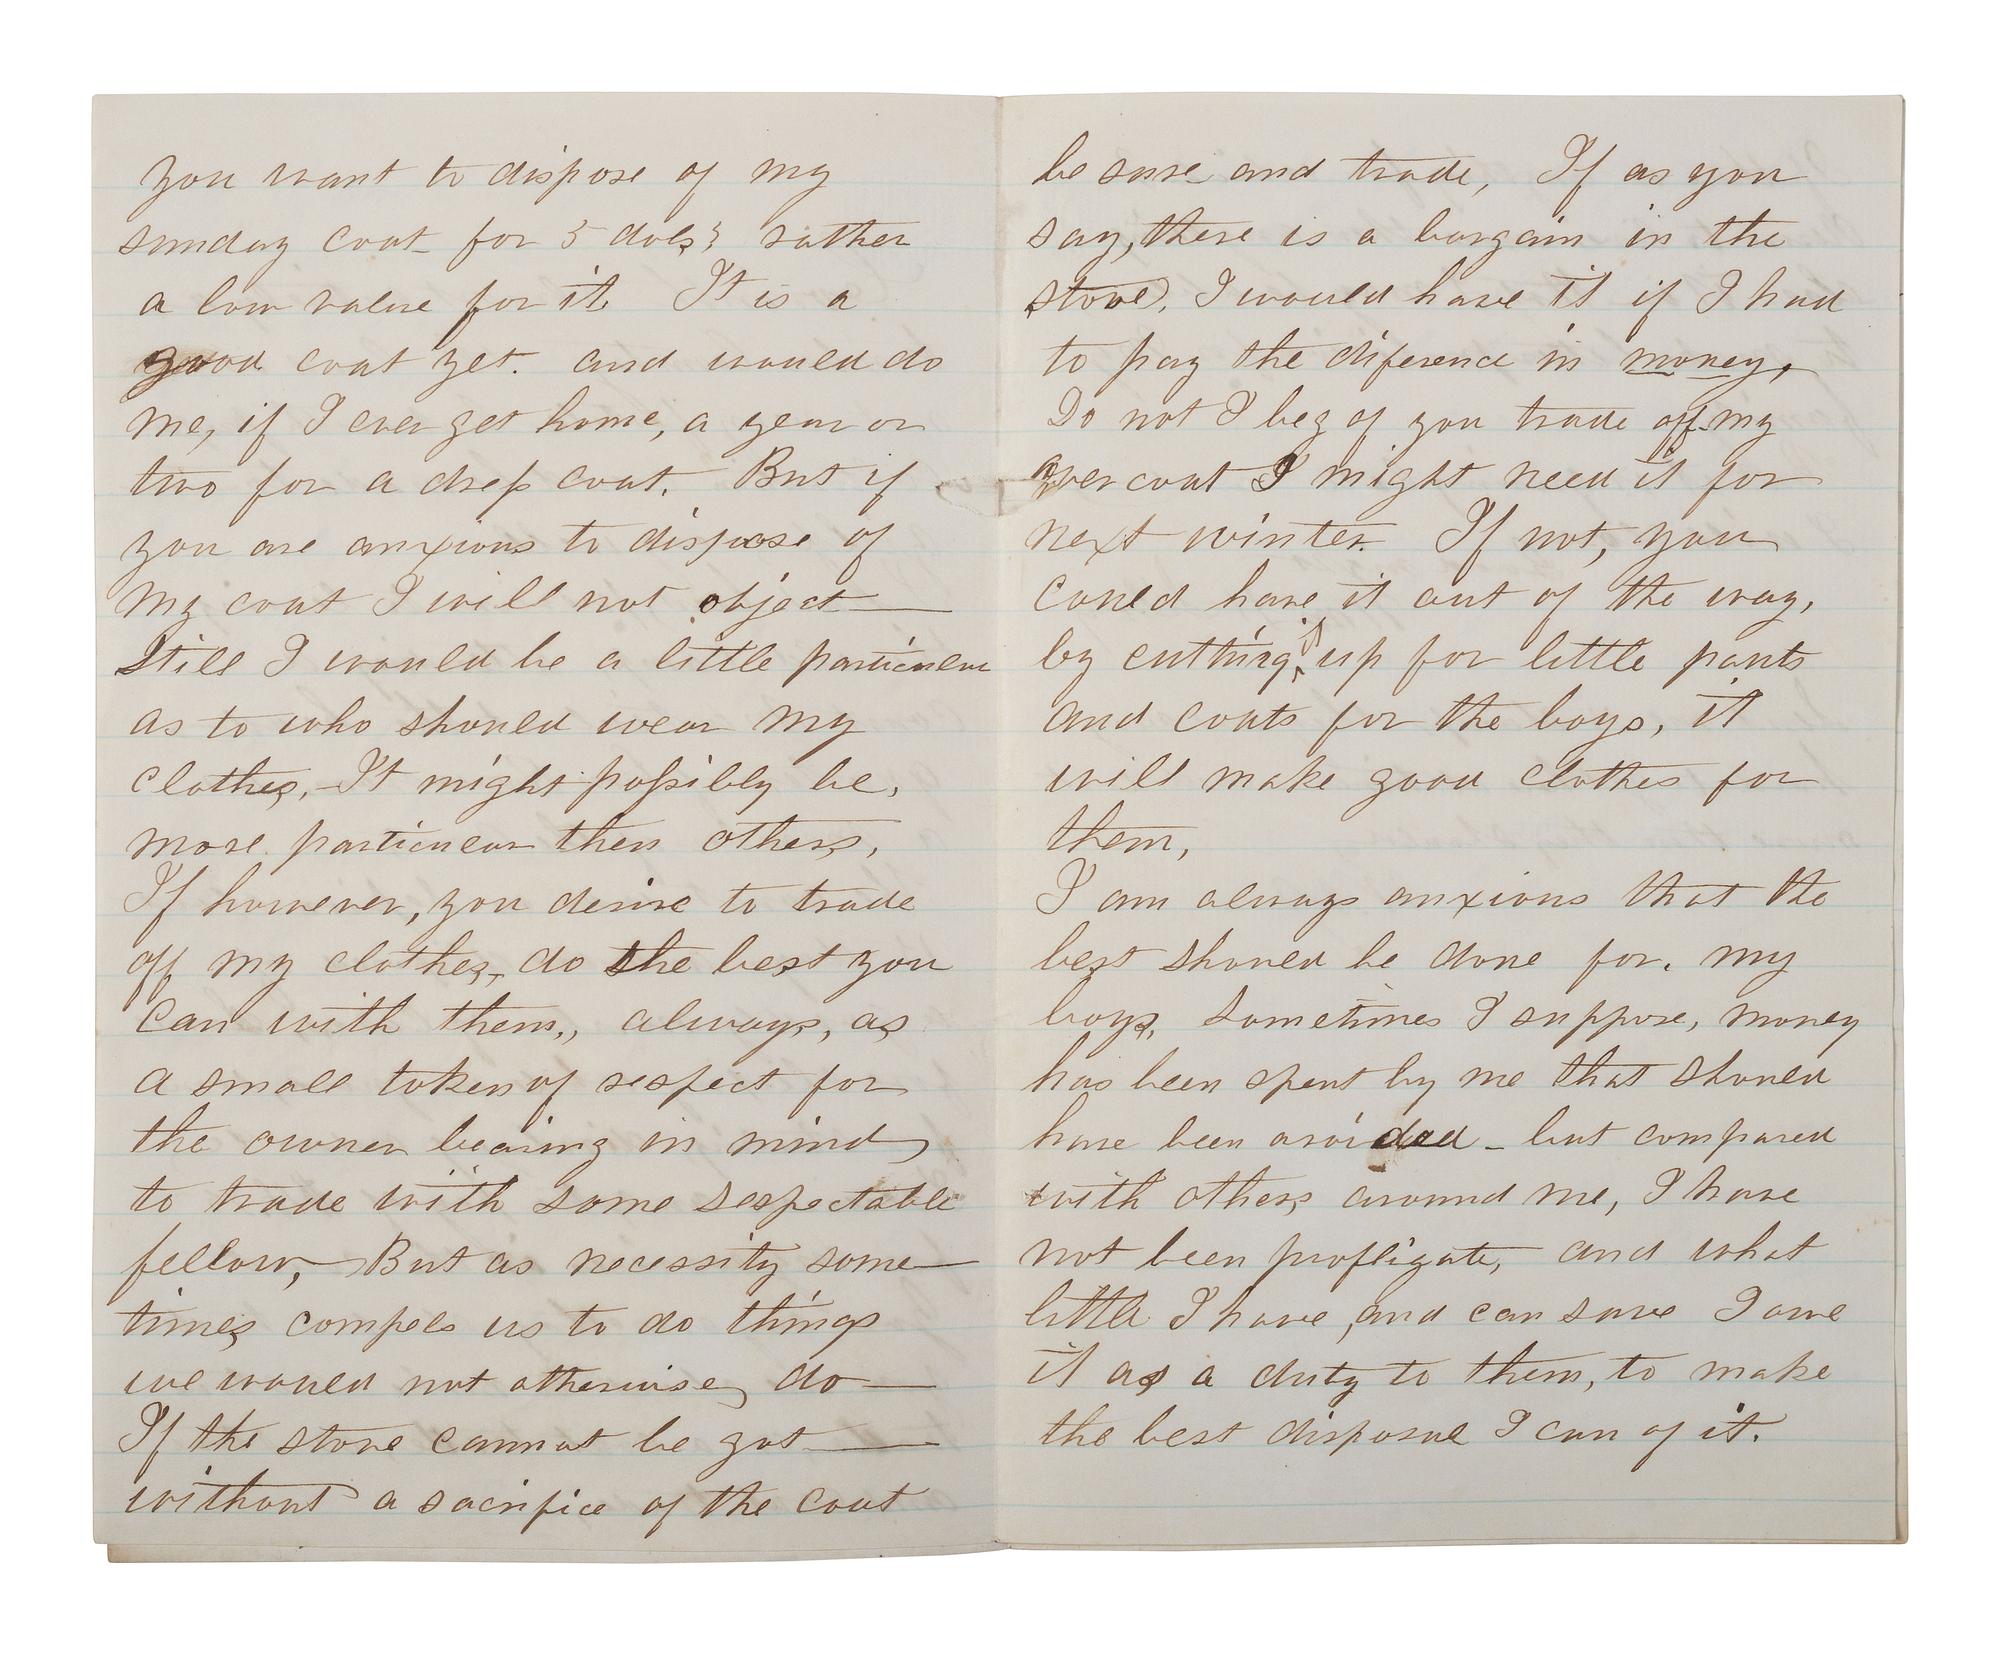 you want to dispose of my
sunday coat for 5 dols; rather
a low value for it It is a
good coat yet. and would do
me, if I ever get home, a year or
two for a dress coat. But if
you are anxious to dispose of
my coat I will not object—
Still I would be a little particular
as to who should wear my
clothes,– It might possibly be,
more particular then others,
If however, you desire to trade
off my clothes, do the best you
can with them., always, as
a small token of respect for
the owner bearing in mind,
to trade with some respectable
fellow,– But as necessity some—
times compels us to do things
we would not otherwise, do—
If the stove cannot be got—
without a sacrifice of the coat
be sure and trade, If as you
say, there is a bargain in the
stove, I would have it if I had
to pay the diference in money,
Do not I beg of you trade off my
overcoat I might need it for
next winter. If not, you
could have it out of the way,
by cutting it up for little pants
and coats for the boys, it
will make good clothes for
them,
I am always anxious that the
best should be done for, my
boys, Sometimes I suppose, money
has been spent by me that should
have been avoided – but compared
with others around me, I have
not been profligate, and what
little I have, and can save I owe
it as a duty to them, to make
the best disposal I can of it.